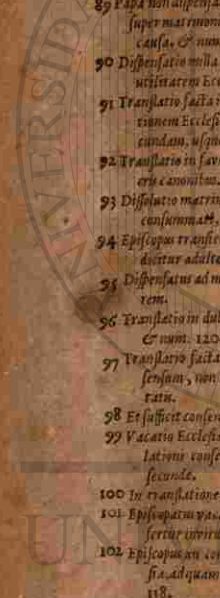 89 Papa non dispensa
super matrimon
causa. & num
90 Dispensatio nulla
utilitatem Ecc
91 Translatio facta
tionem Ecclesi
cundam, usque
92 Translatio in fav
eris canonitum.
93 Dissolutio matrim
consummati.
94 Episcopus transfe
dicitur adulte
95 Dispensatus ad m
rem.
96 Translatio in dub
& num. 120
97 Translatio facta
sensum, non
tatis.
98 Et sufficit consen
99 Vacatio Ecclesia
lationi conse
secunda.
100 In translatione
101 Episcopatus vaca
fertur invitus
102 Episcopus an con
sia, ad quam
118.
UNI
VERSID